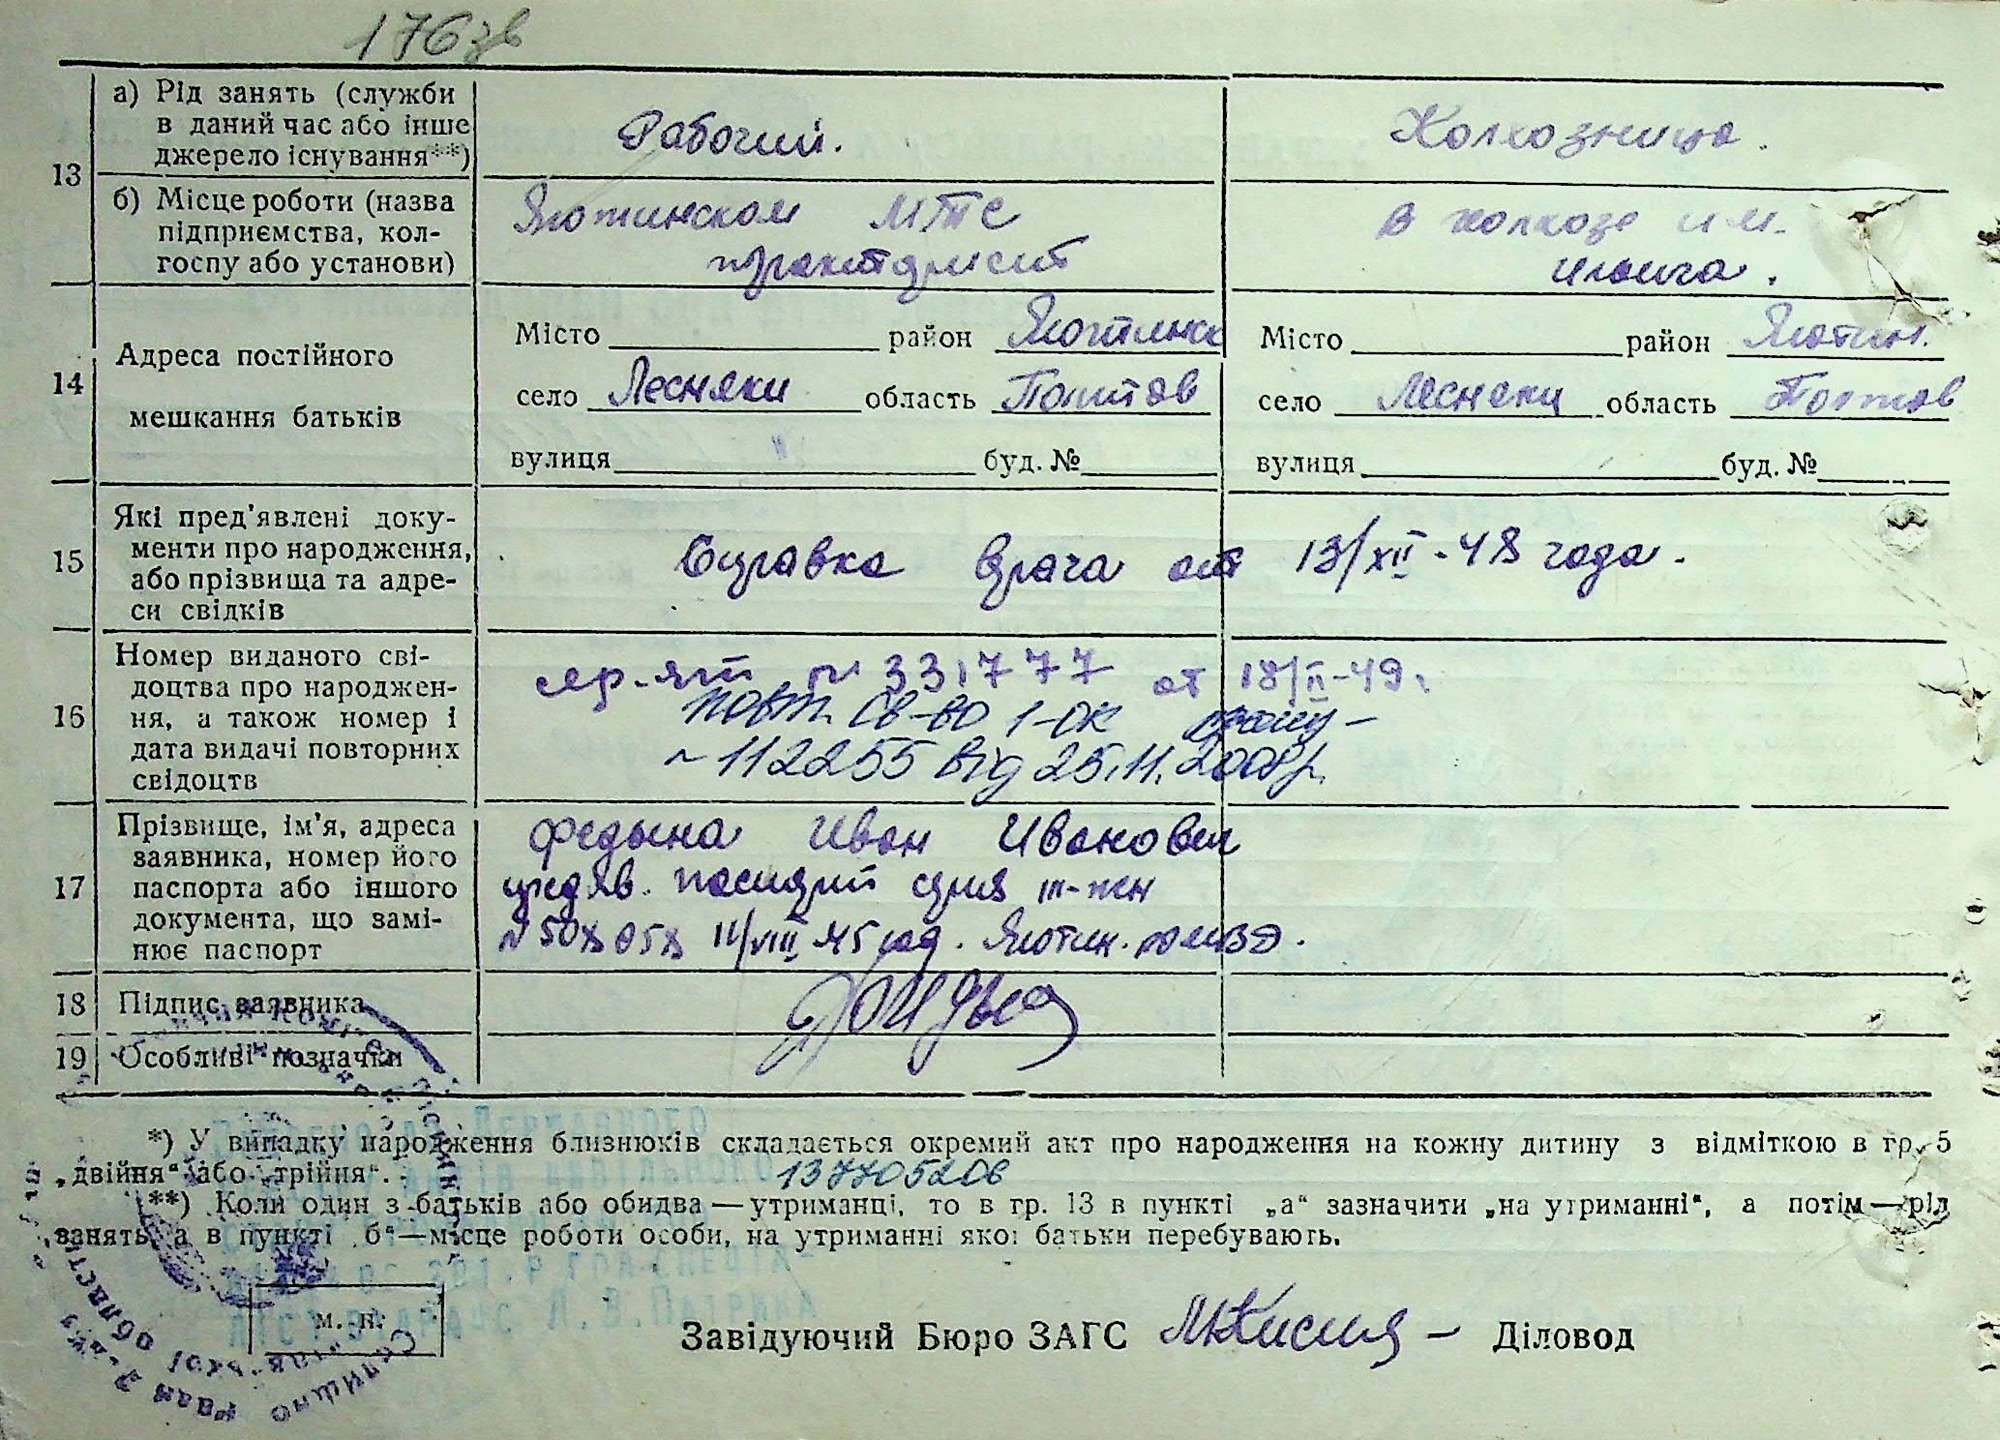 176зв
13
а) Рід занять (служби
в даний час або інше
джерело існування**)
Рабочий.
Колхозница.
б) Місце роботи (назва
підприємства, кол-
госпу або установи)
Яготинском МТС
тракторист
в колхозе им.
Ильича.
14
Адреса постійного
мешкання батьків
Місто район Яготинск
село Лесняки область Полтав
вулиця буд. №
Місто район Яготин.
село Лесняки область Полтав
вулиця буд. №
15
Які пред'явлені доку-
менти про народження,
або прізвища та адре-
си свідків
Справка врача от 13/XII-48 года.
16
Номер виданого сві-
доцтва про народжен-
ня, а також номер і
дата видачі повторних
свідоцтв
№ 331777 от 18/II-49г.
повт. св-во 1-ОК
№ 112255 від 25.11.2008р.
17
Прізвище, ім'я, адреса
заявника, номер його
паспорта або іншого
документа, що замі-
нює паспорт
Федына Иван Иванович
предяв.
Яготин.
18
Підпис заявника
19
Особливі позначки
*) У випадку народження близнюків складається окремий акт про народження на кожну дитину з відміткою в гр. 5
„двійня“ або „трійня“.
137705206
**) Коли один з батьків або обидва — утриманці, то в гр. 13 в пункті „а“ зазначити „на утриманні“, а потім — рід
занять, а в пункті „б“ — місце роботи особи, на утриманні якої батьки перебувають.
м. п.
Завідуючий Бюро ЗАГС Діловод